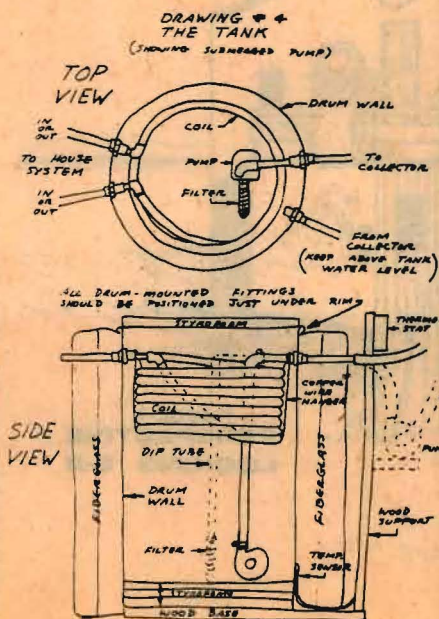 DRAWING # 4
THE TANK
(SHOWING SUBMERGED PUMP)
TOP
VIEW
DRUM WALL
COIL
IN
OR
OUT
PUMP
TO
COLLECTOR
TO HOUSE
SYSTEM
FILTER
IN
OR
OUT
FROM
COLLECTOR
(KEEP ABOVE TANK
WATER LEVEL)
ALL DRUM-MOUNTED FITTINGS
SHOULD BE POSITIONED JUST UNDER RIM
STYROFOAM
THERMO
STAT
COPPER
WIRE
HANGER
COIL
SIDE
VIEW
FIBERGLASS
FIBERGLASS
DIP TUBE
DRUM
WALL
WOOD
SUPPORT
FILTER
TEMP.
SENSOR
STYROFOAM
WOOD BASE